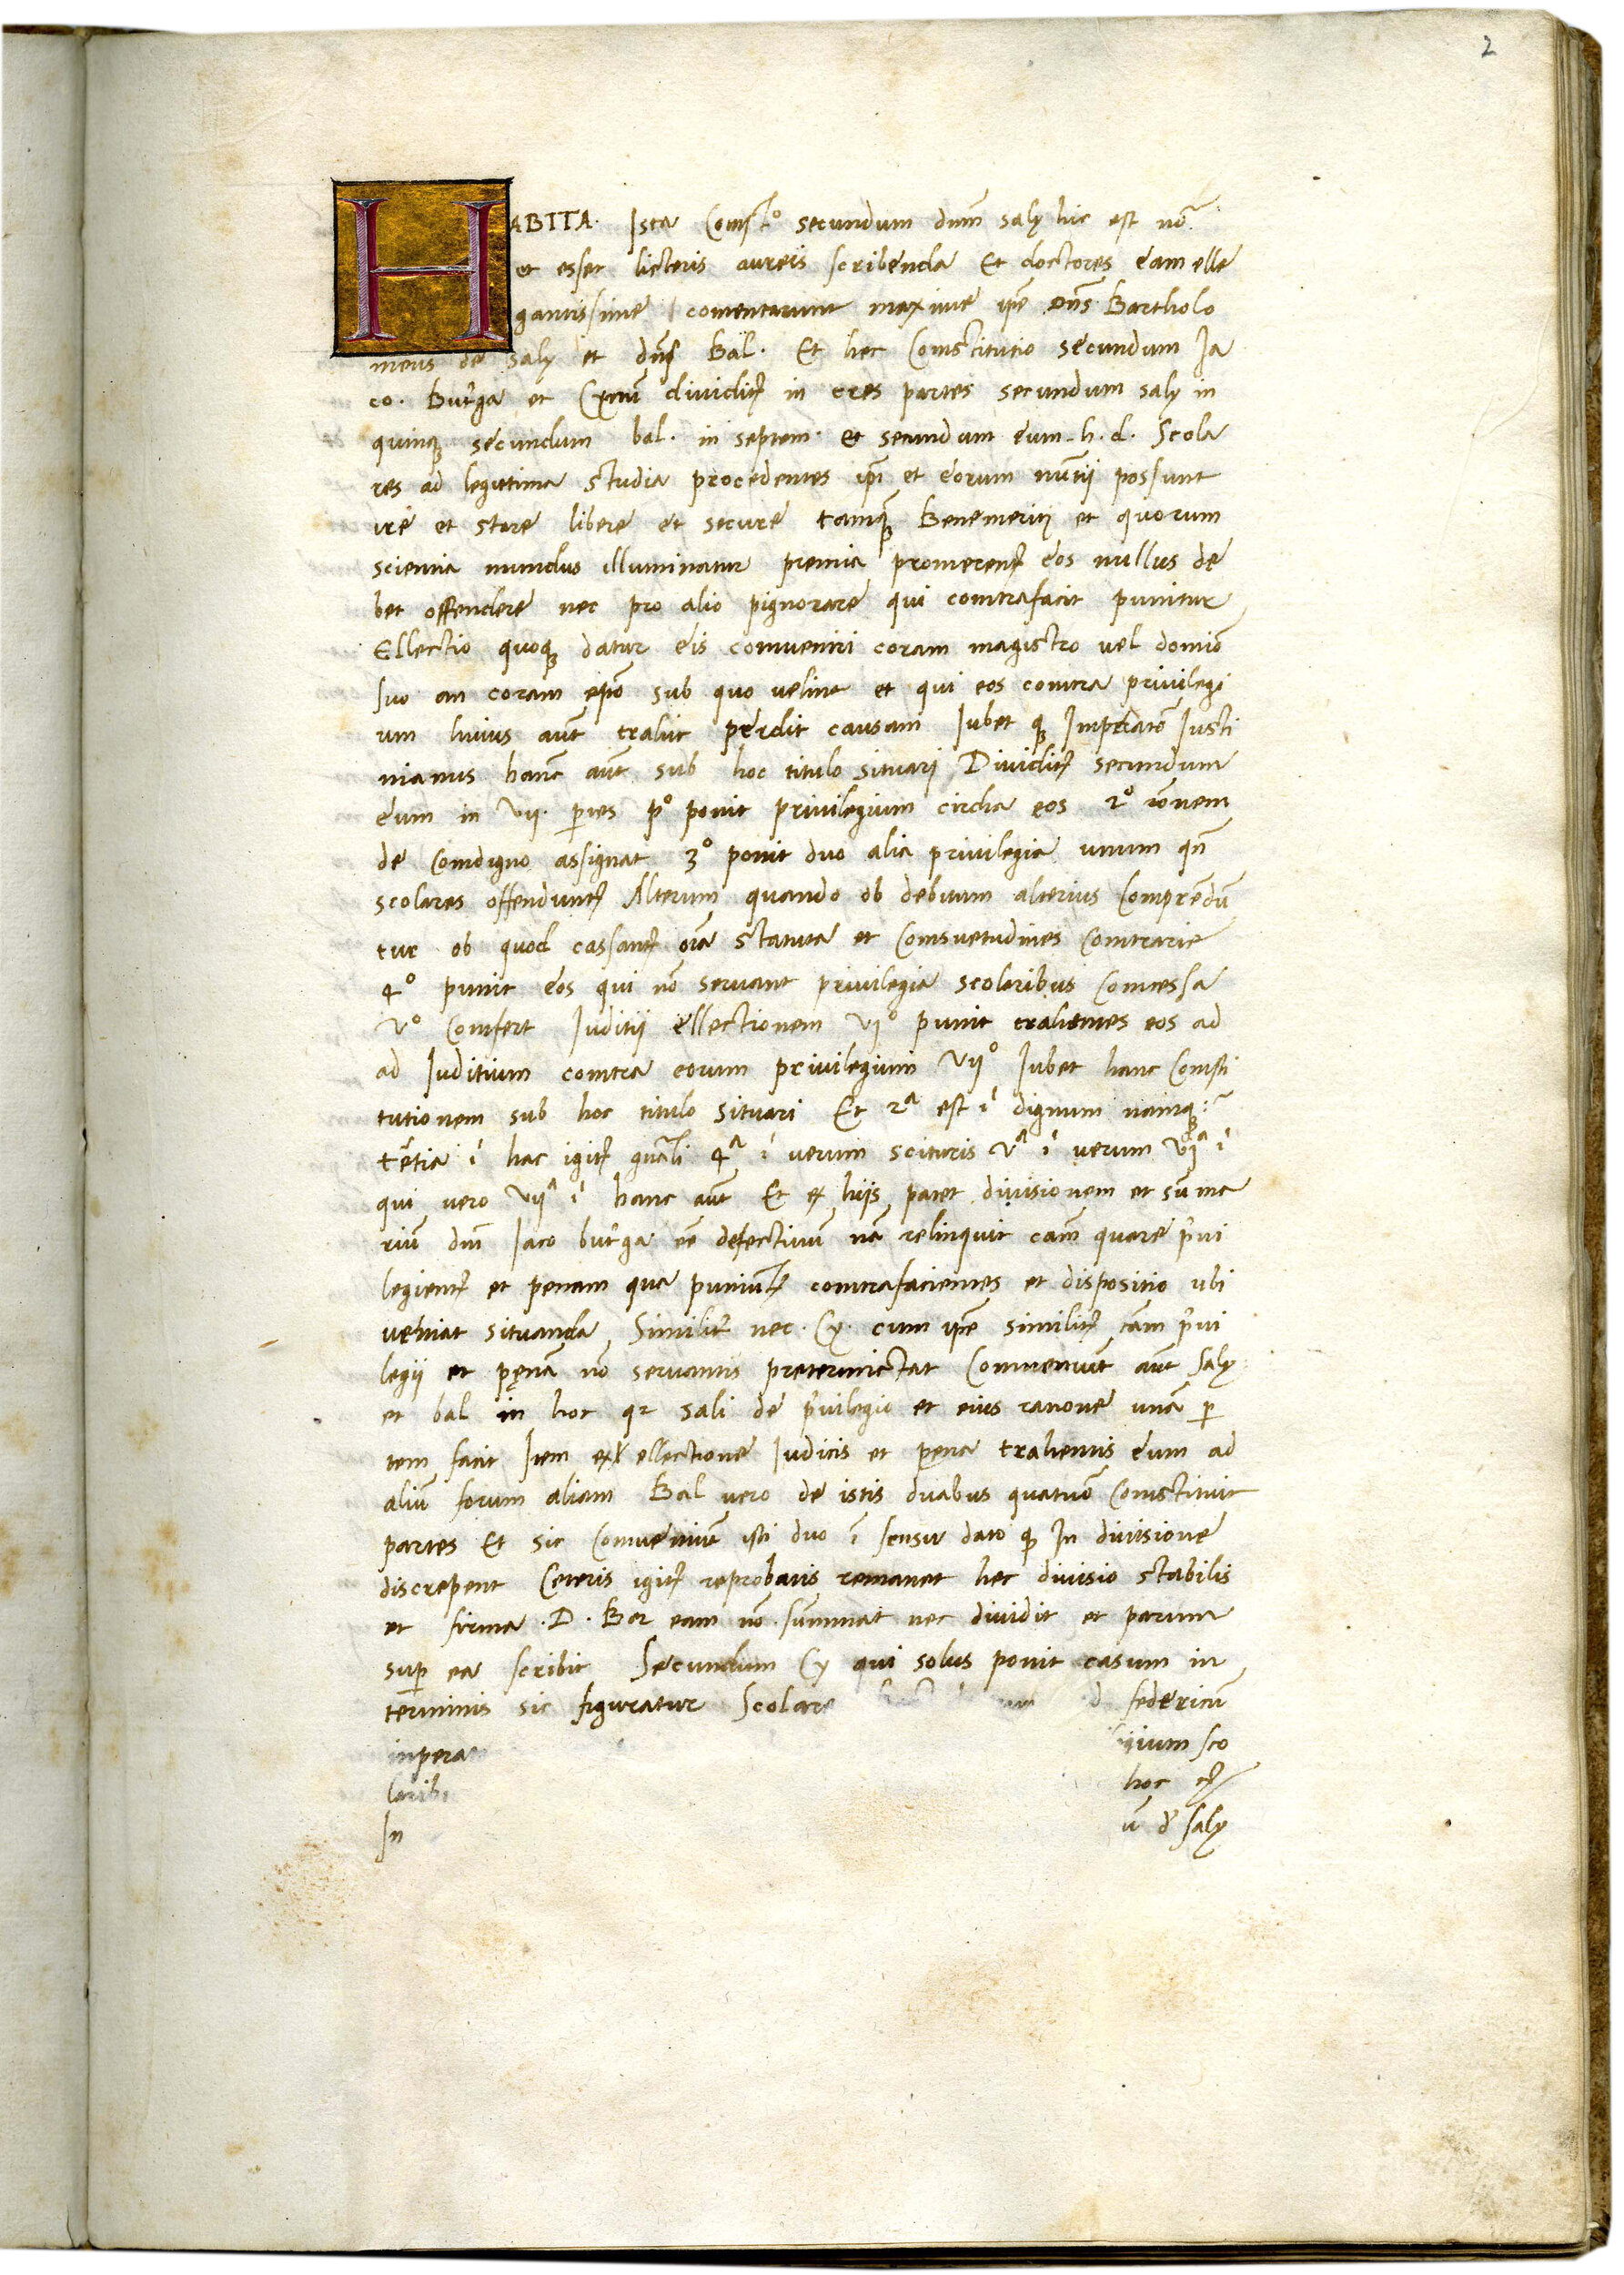 2
HABITA. Ista Constᵒ secundum dnm̄ saly hic est nō.
et esset licteris aureis scribenda Et doctores eam elle
gantissime comentarunt maxime ip̄e Dn̄s Bartholo
meus de saly et dn̄s Bal. Et hec Constitutio secundum Ja
co. Butr̄ga et Cynū diuidit̃ in tres partes secundum saly in
quinq̨ secundum bal. in septem. et secundum eum. h. d. Scola
res ad legittima studia procedentes ip̄i et eorum nuñtij possunt
ire et stare libere et secure tamq̨ Benemeriti et quorum
scientia mundus illuminatur premia promerent̃ eos nullus de
bet offendere nec pro alio pignorare qui contrafacit punitur
Ellectio quoq̨ datur eis conueniri coram magistro uel domiō
suo an coram ep̄o sub quo uelint et qui eos contra priuilegi
um huius aut̄ trahit perdit causam Iubet q̨ Imperatō Justi
nianus hanc̄ aut̄ sub hoc titulo situari Diuidit̃ secundum
eum in vij. p̄tes pᵒ ponit priuilegium circha eos 2ᵒ rōnem
de condigno assignat 3ᵒ ponit duo alia priuilegia unum qn̄
scolares offendunt̃ Alterum quando ob debitum alterius Comprēdū
tur ob quod cassant̃ oīa statuta et Consuetudines Contrarie
4ᵒ punit eos qui nō seruant priuilegia scolaribus Concessa
vᵒ Confert Juditij ellectionem vjᵒ punit trahentes eos ad
ad Juditium contra eorum priuilegium vijᵒ Iubet hanc Consti
tutionem sub hoc titulo situari Et 2ᵃ est ī dignum namq̨:
tētia ī hac igit̃ gn̄ali 4ᵃ ī uerum scituris vᵃ ī uerum vjᵃ ī
qui uero vijᵃ ī hanc aut̄ Et ex hijs patet diuisionem et sūma
riū dn̄i Jaco butr̄ga eē defectiuū nā relinquit cām quare p̄iui
legient̃ et penam qua puniūt̃ contrafacientes et dispositio ubi
ueniat situanda Similit̃ nec. Cy. cum ip̄e similit̃ cām p̄iui
legij et pęnā nō seruantis pretermictat Conueniūt aut̄ saly
et bal in hoc qz sali de p̄iuilegio et eius ratione unā p̄
tem facit Item ex ellectione Judicis et pena trahentis eum ad
aliū forum aliam Bal uero de istis duabus quatuō Constituit
partes Et sic Conueniūt isti duo ī sensu dato q̨ In diuisione
discrepent Ceteris igit̃ reprobatis remanet hec diuisio stabilis
et firma. D. Bar eam nō sūmmat nec diuidit et parum
sup̄ ea scribit Secundum Cy qui solus ponit casum in
terminis sic figuratur Scolare d federicū
inpera ium sco
larib hoc
In ū d saly